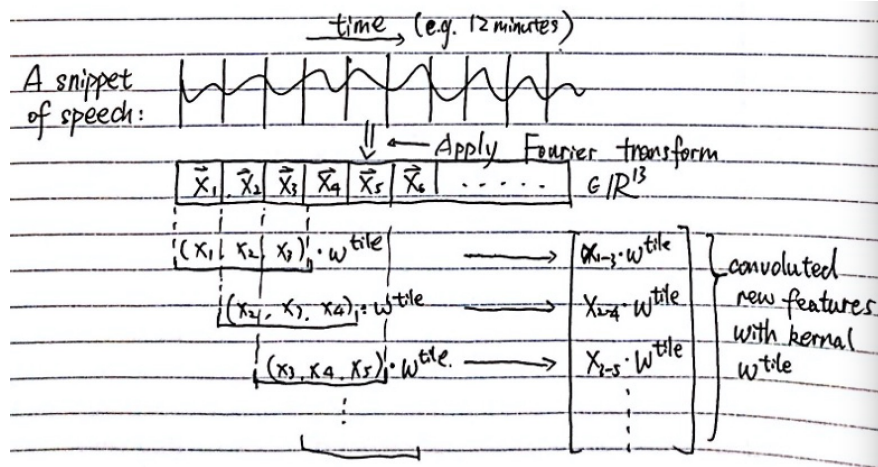 time (e.g. 12 minutes)
A snippet
of speech:
Apply Fourier transform
X⃗₁ X⃗₂ X⃗₃ X⃗₄ X⃗₅ X⃗₆ ...... ∈ ℝ¹³
(x₁ x₂ x₃) · w^tile → X₁₋₃ · w^tile
(x₂, x₃, x₄) · w^tile → X₂₋₄ · w^tile
(x₃, x₄, x₅) · w^tile. → X₃₋₅ · w^tile
convoluted
new features
with kernal
w^tile